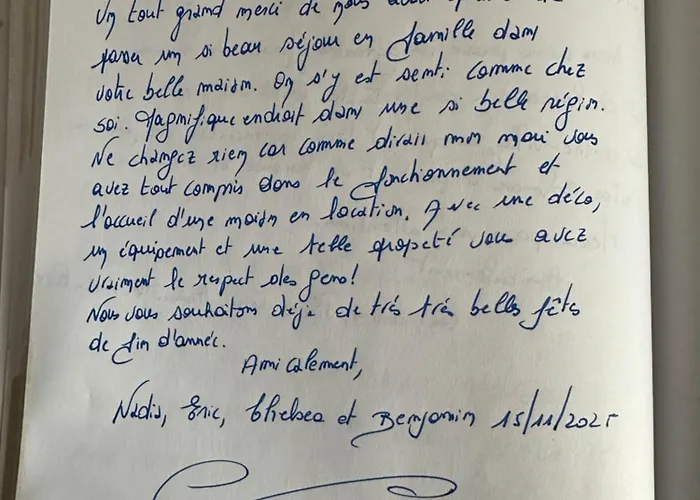 Un tout grand merci de nous avoir
passer un si beau séjour en famille dans
votre belle maison. On s'y est senti comme chez
soi. Magnifique endroit dans une si belle région.
Ne changez rien car comme dirais mon mari vous
avez tout compris dans le fonctionnement et
l'accueil d'une maison en location. Avec une déco,
un équipement et une telle propeté vous avez
vraiment le respect des gens!
Nous vous souhaitons déjà de très très belles fêts
de fin d'année.
Amicalement,
Nadia, Eric, Chelsea et Benjamin 15/11/2025